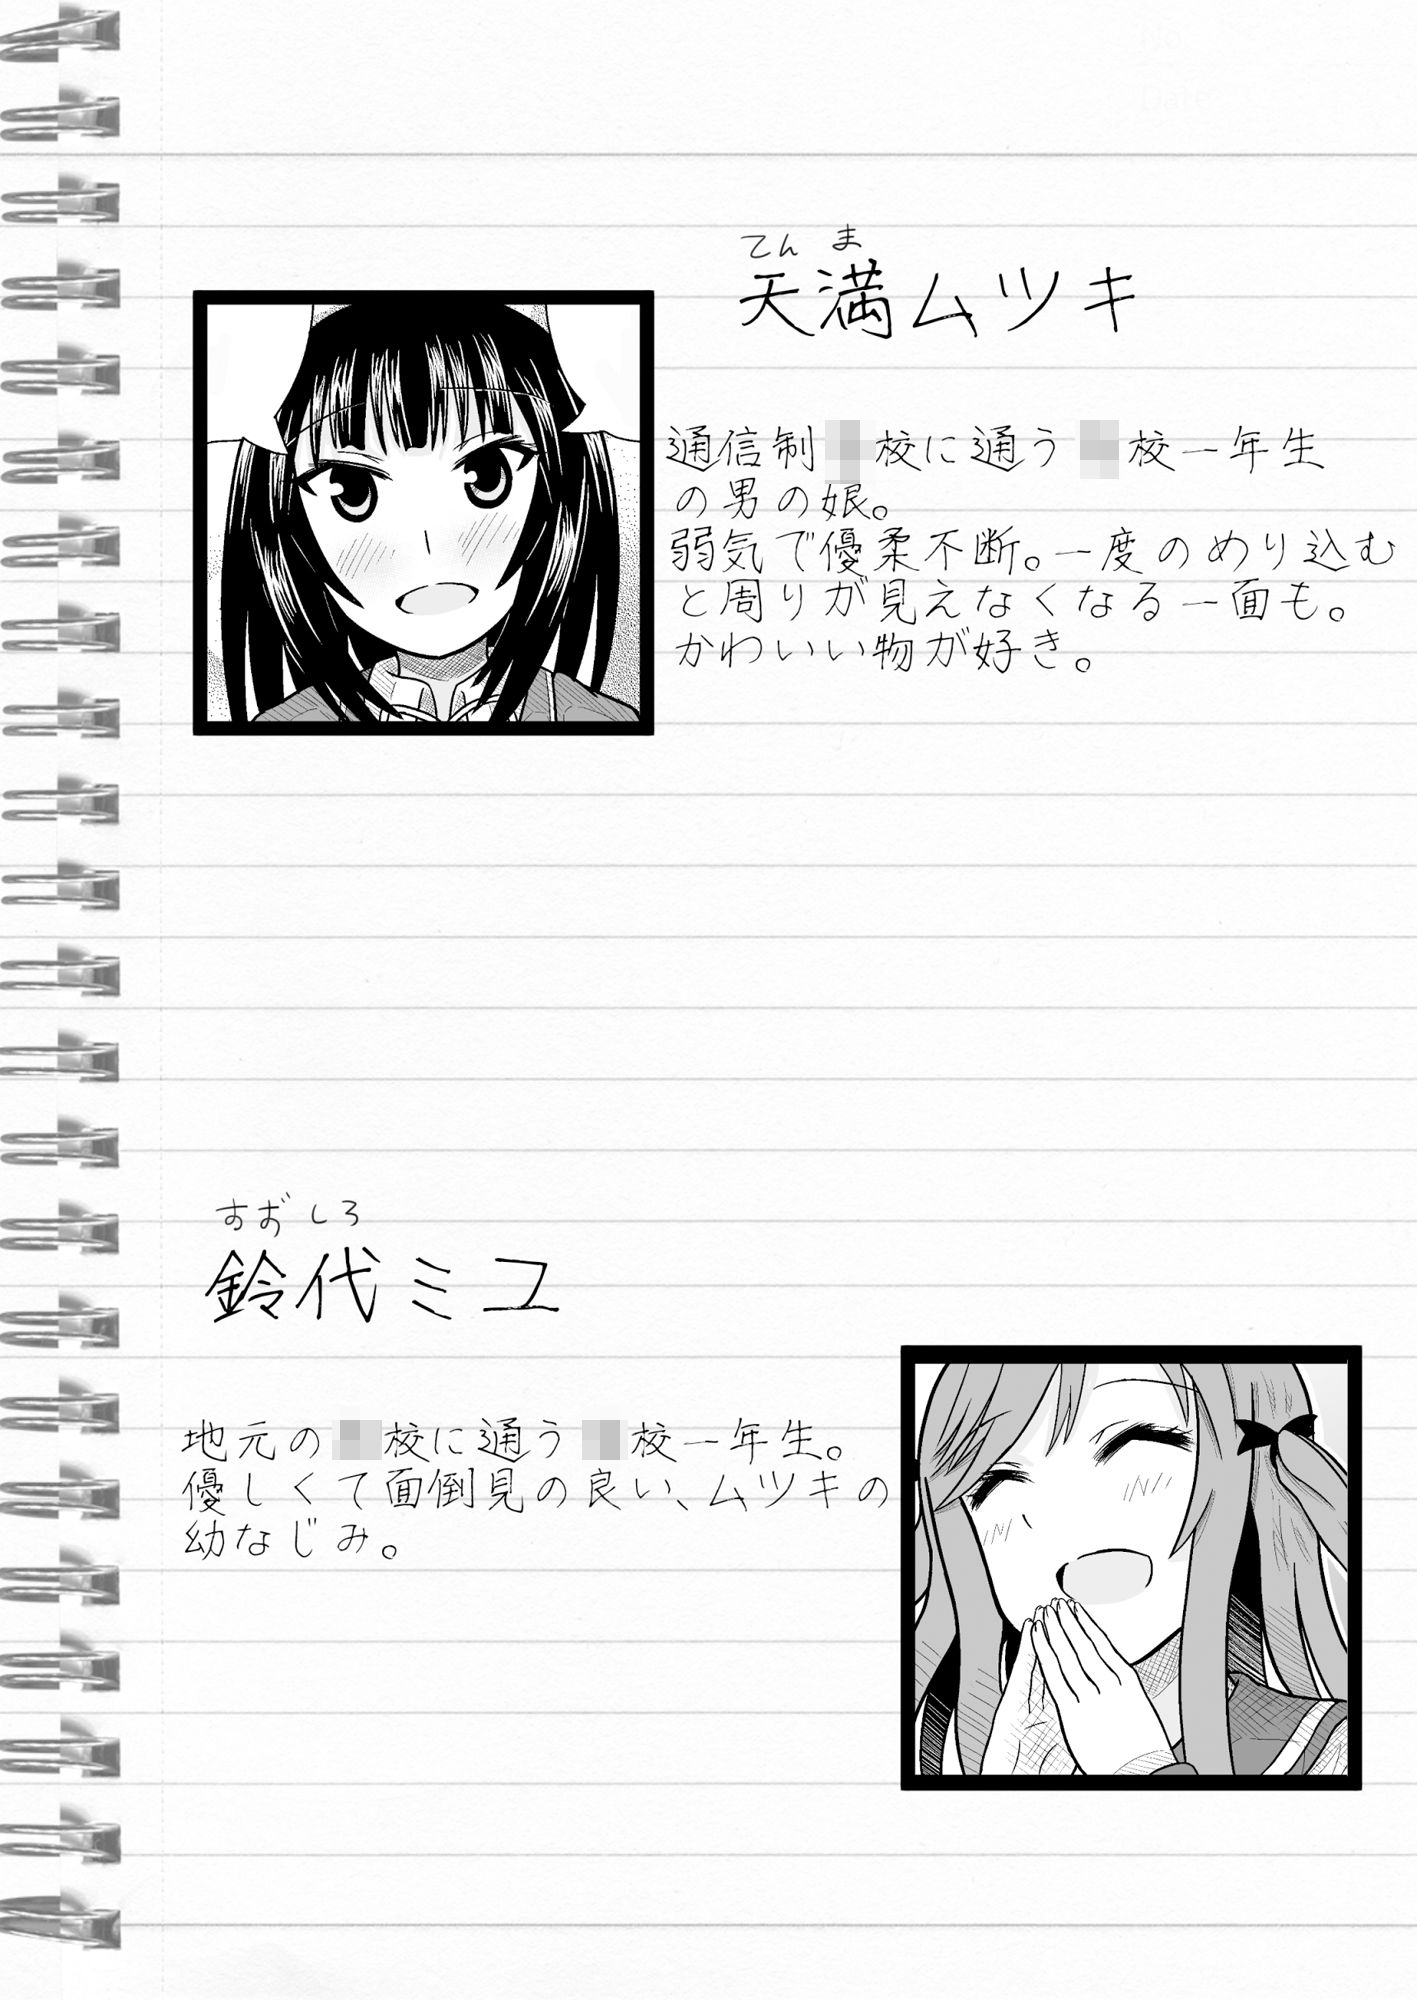 てんま
天満ムツキ
通信制校に通う校一年生
の男の娘。
弱気で優柔不断。一度のめり込む
と周りが見えなくなる一面も。
かわいい物が好き。
すずしろ
鈴代ミユ
地元の校に通う校一年生。
優しくて面倒見の良い、ムツキの
幼なじみ。